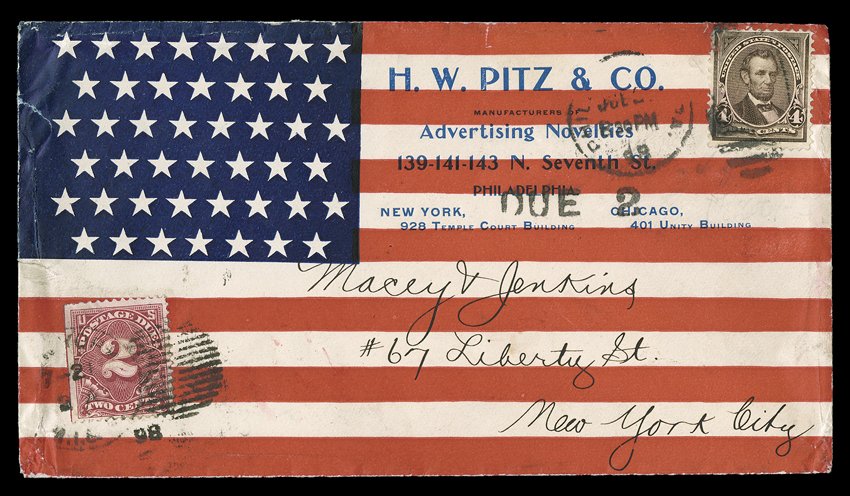 H. W. PITZ & CO.
MANUFACTURERS OF
Advertising Novelties
139-141-143 N. Seventh St.
PHILADELPHIA
NEW YORK, CHICAGO,
928 TEMPLE COURT BUILDING 401 UNITY BUILDING
DUE 2
Macey & Jenkins
#67 Liberty St.
New York City
4 CENTS 4
U S
POSTAGE DUE
2
TWO CENTS
98